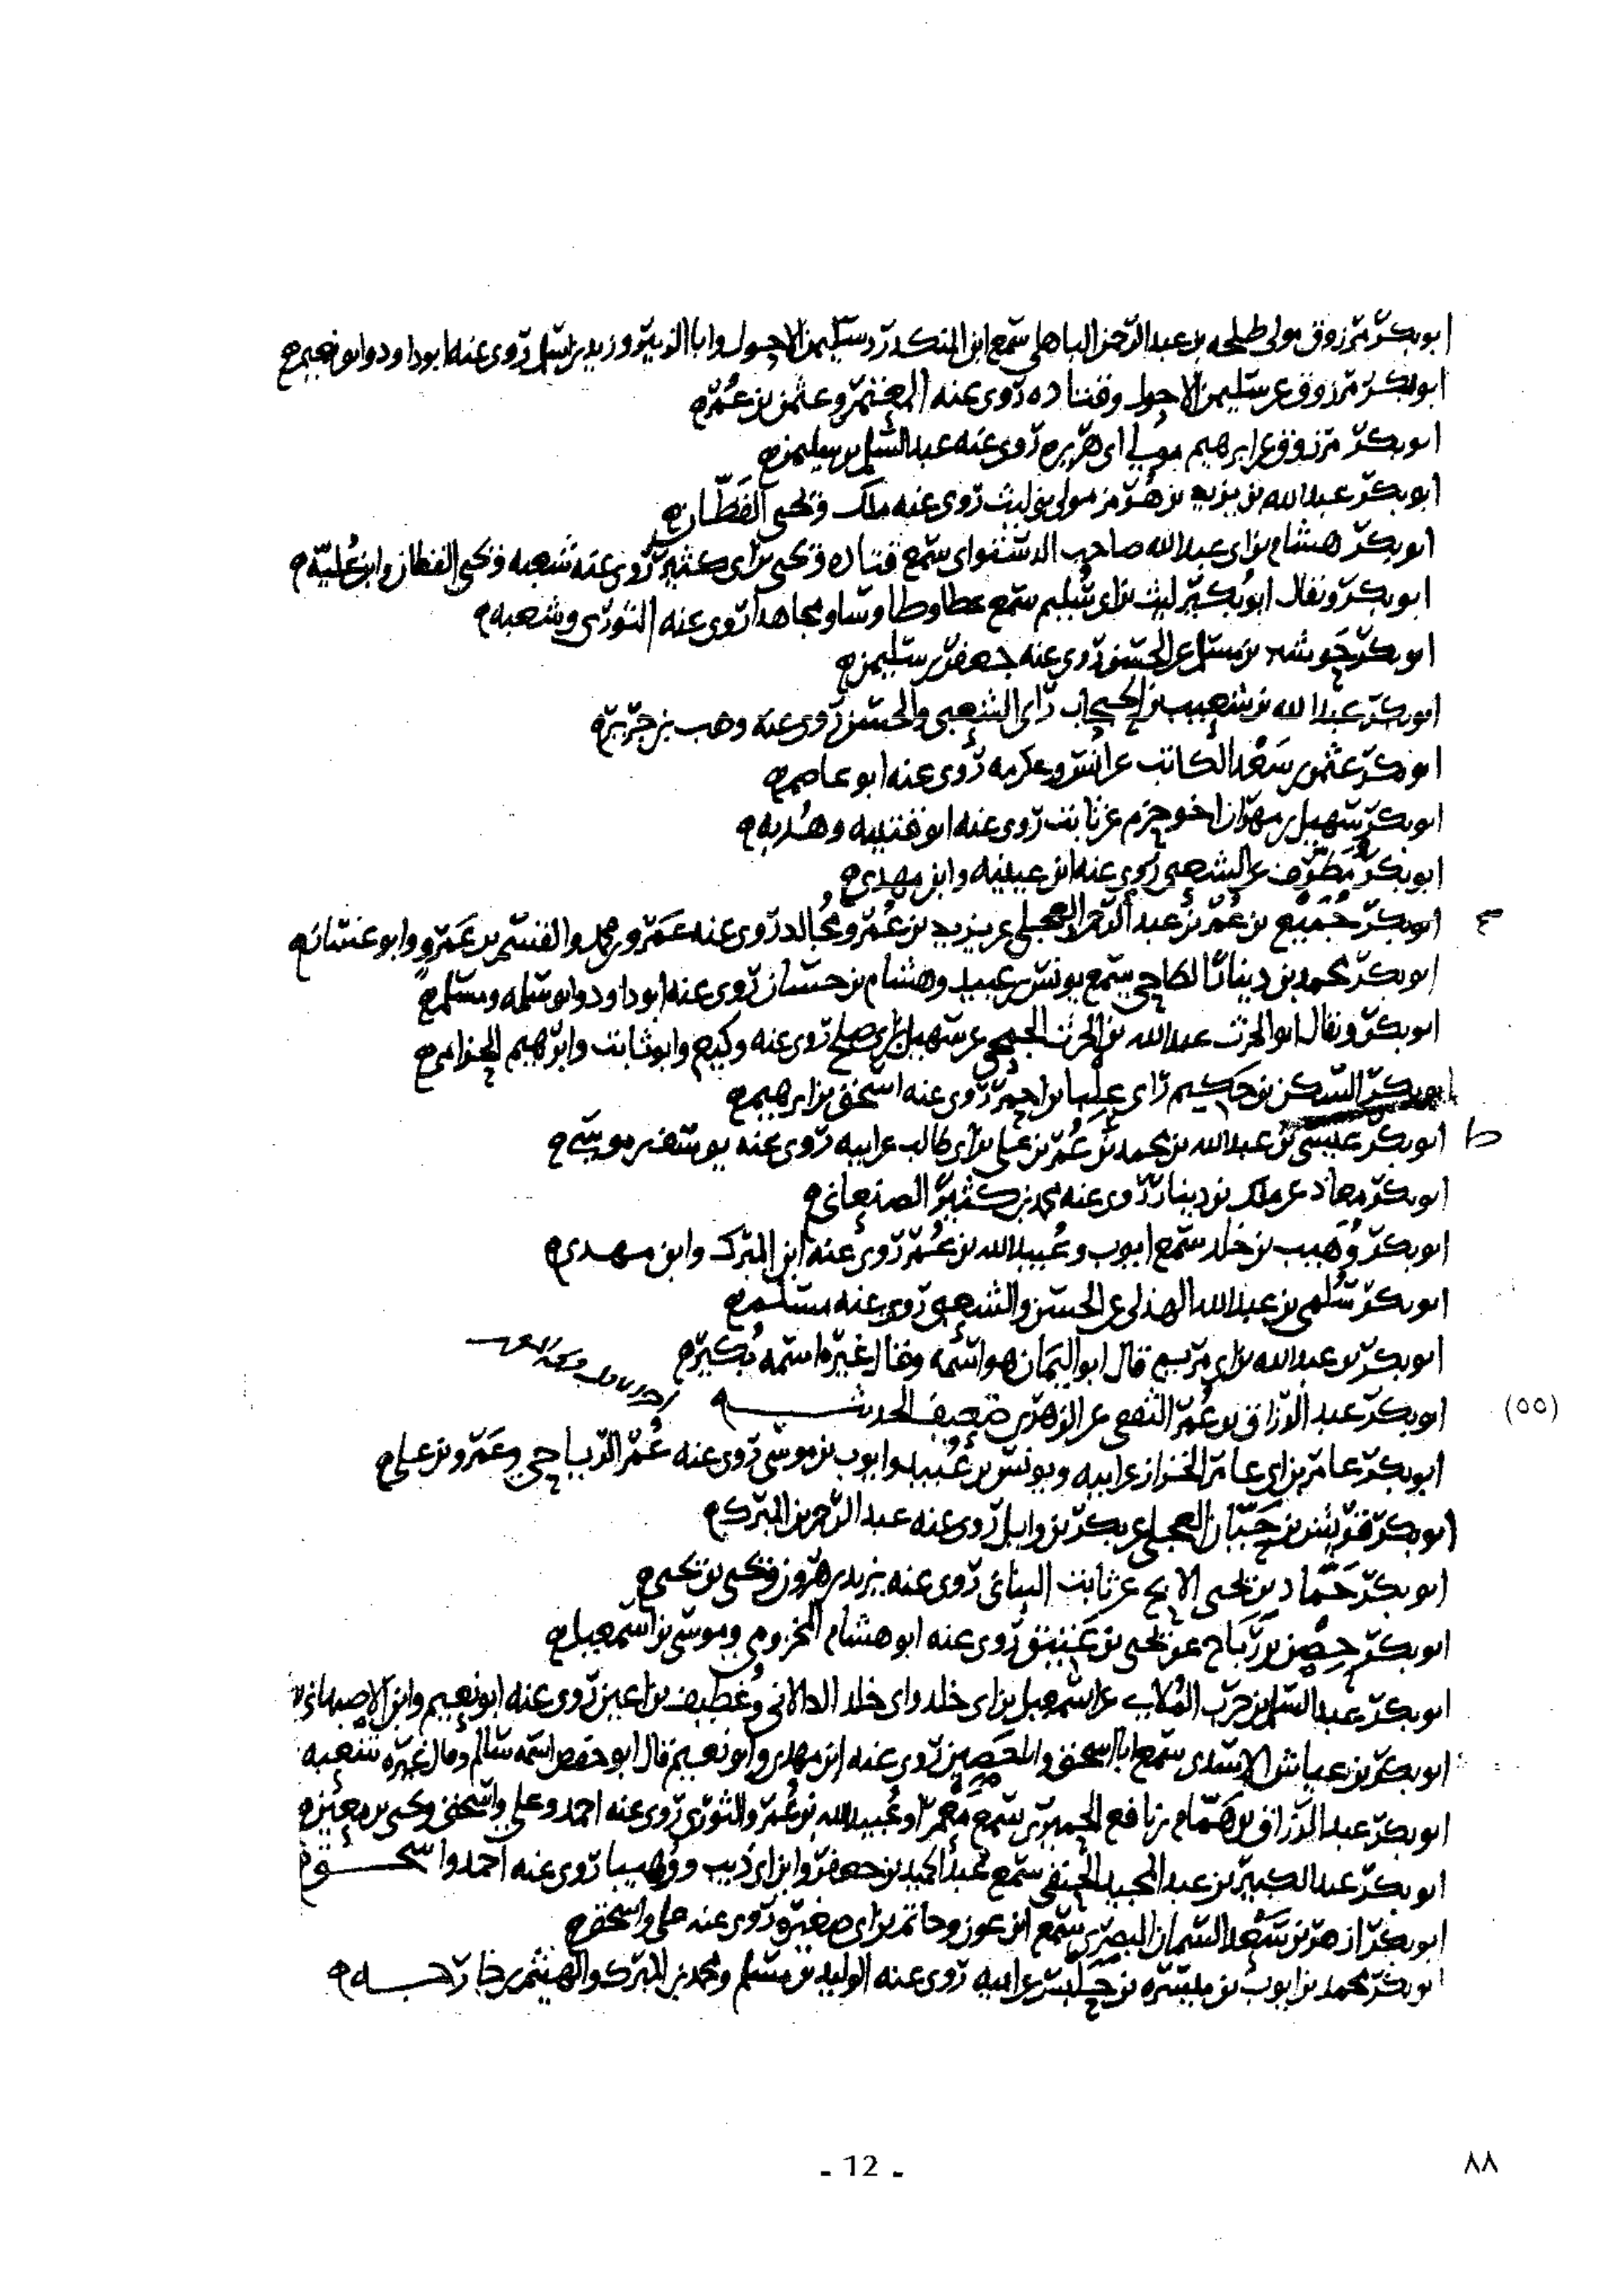 ابو بكر مرزوق مولى طلحه بن عبد الرحمن الباهلي سمع ابن المنكدر وسليمن الاحول وابا الزبير وزيد بن اسلم روى عنه ابو داود وابو نعيم
ابو بكر مرزوق عن سليمن الاحول وقتاده روى عنه المعتمر وعثمن بن عمر
ابو بكر مرزوق عن ابرهيم مولى ابي هريره روى عنه عبد السلم بن سليمن
ابو بكر عبد الله بن يزيد بن هرمز مولى بني ليث روى عنه ملك ويحيى القطان
ابو بكر هشام بن ابي عبد الله صاحب الدستوائي سمع قتاده ويحيى بن ابي كثير روى عنه شعبه ويحيى القطان وابن عليه
ابو بكر ويقال ابو بكير ليث بن ابي سليم سمع عطا وطاوسا ومجاهدا روى عنه الثوري وشعبه
ابو بكر حوشب بن مسلم عن الحسن روى عنه جعفر بن سليمن
ابو بكر عبد الله بن شعيب بن الحبحاب راى الشعبي والحسن روى عنه وهب بن جرير
ابو بكر عثمن بن سعد الكاتب عن انس وعكرمه روى عنه ابو عاصم
ابو بكر سهيل بن مهران اخو حزم عن ثابت روى عنه ابو قتيبه وهدبه
ابو بكر مطرف عن الشعبي روى عنه ابن عيينه وابن مهدي
ابو بكر جميع بن عمر بن عبد الرحمن العجلي عن يزيد بن عمر ومجالد روى عنه عمرو بن محمد والقسم بن عمرو وابو غسان
ابو بكر محمد بن دينار الطاحي سمع يونس بن عبيد وهشام بن حسان روى عنه ابو داود وابو سلمه ومسلم
ابو بكر ويقال ابو الحرث عبد الله بن الحرث الجمحي عن سهيل بن ابي صلح روى عنه وكيع وابو ثابت وابرهيم الحزامي
ابو بكر السكن بن حكيم راى علبا بن احمر روى عنه اسحق بن ابرهيم
ابو بكر عيسى بن عبد الله بن محمد بن عمر بن علي بن ابي طالب عن ابيه روى عنه يوسف بن موسى
ابو بكر معاذ عن ملك بن دينار روى عنه محمد بن كثير الصنعاني
ابو بكر وهيب بن خلد سمع ايوب وعبيد الله بن عمر روى عنه ابن المبرك وابن مهدي
ابو بكر سلمى بن عبد الله الهذلي عن الحسن والشعبي روى عنه مسلم
ابو بكر بن عبد الله بن ابي مريم قال ابو اليمان هو اسمه وقال غيره اسمه بكير
(٥٥) ابو بكر عبد الرزاق بن عمر الثقفي عن الزهري ضعيف الحديث
ابو بكر عامر بن ابي عامر الخزاز عن ابيه ويونس بن عبيد وايوب بن موسى روى عنه عمر الرياحي وعمرو بن علي
ابو بكر قريش بن حيان العجلي عن بكر بن وايل روى عنه عبد الرحمن بن المبرك
ابو بكر حماد بن يحيى الابح عن ثابت البناني روى عنه يزيد بن هرون ويحيى بن يحيى
ابو بكر حصين بن رباح عن يحيى بن عتيق روى عنه ابو هشام المخزومي وموسى بن اسمعيل
ابو بكر عبد السلم بن حرب الملائي عن اسمعيل بن ابي خلد وابي خلد الدالاني وغطيف بن اعين روى عنه ابو نعيم وابن الاصبهاني
ابو بكر بن عياش الاسدي سمع ابا اسحق وابا حصين روى عنه ابن مهدي وابو نعيم قال ابو حفص اسمه سالم وقال غيره شعبه
ابو بكر عبد الرزاق بن همام بن نافع الحميري سمع معمرا وعبيد الله بن عمر والثوري روى عنه احمد وعلي واسحق ويحيى بن معين
ابو بكر عبد الكبير بن عبد المجيد الحنفي سمع عبد الحميد بن جعفر وابن ابي ذيب ووهيبا روى عنه احمد واسحق
ابو بكر ازهر بن سعد السمان البصري سمع ابن عون وحاتم بن ابي صغيره روى عنه علي واسحق
ابو بكر محمد بن ايوب بن ميسره بن حلبس عن ابيه روى عنه الوليد بن مسلم ومحمد بن المبرك والهيثم بن خارجه
- 12 -
٨٨